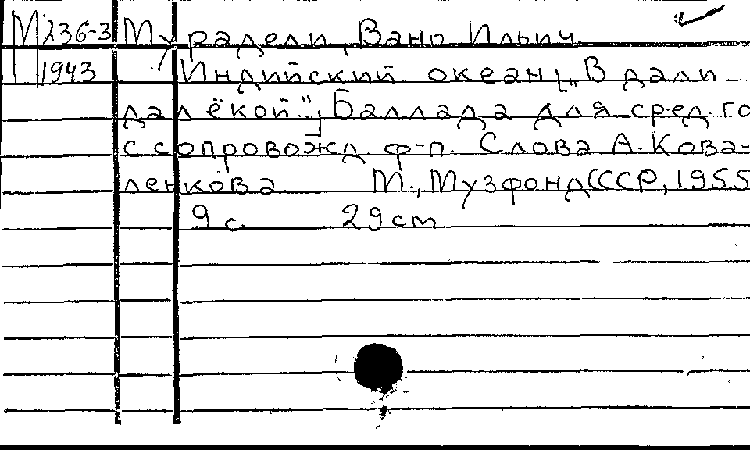 М 236-3 Мурадели, Вано Ильич
1943 Индийский океан „В дали
далёкой"; Баллада для сред. го
с сопровожд. ф-п. Слова А. Кова-
ленкова М., Музфонд СССР, 1955
9 с. 29 cm